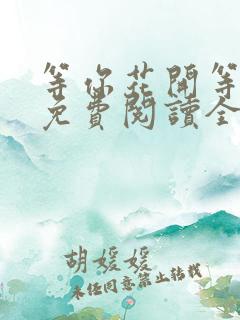 等你花開等
免費閱讀全
胡媛媛
未經同意禁止轉載